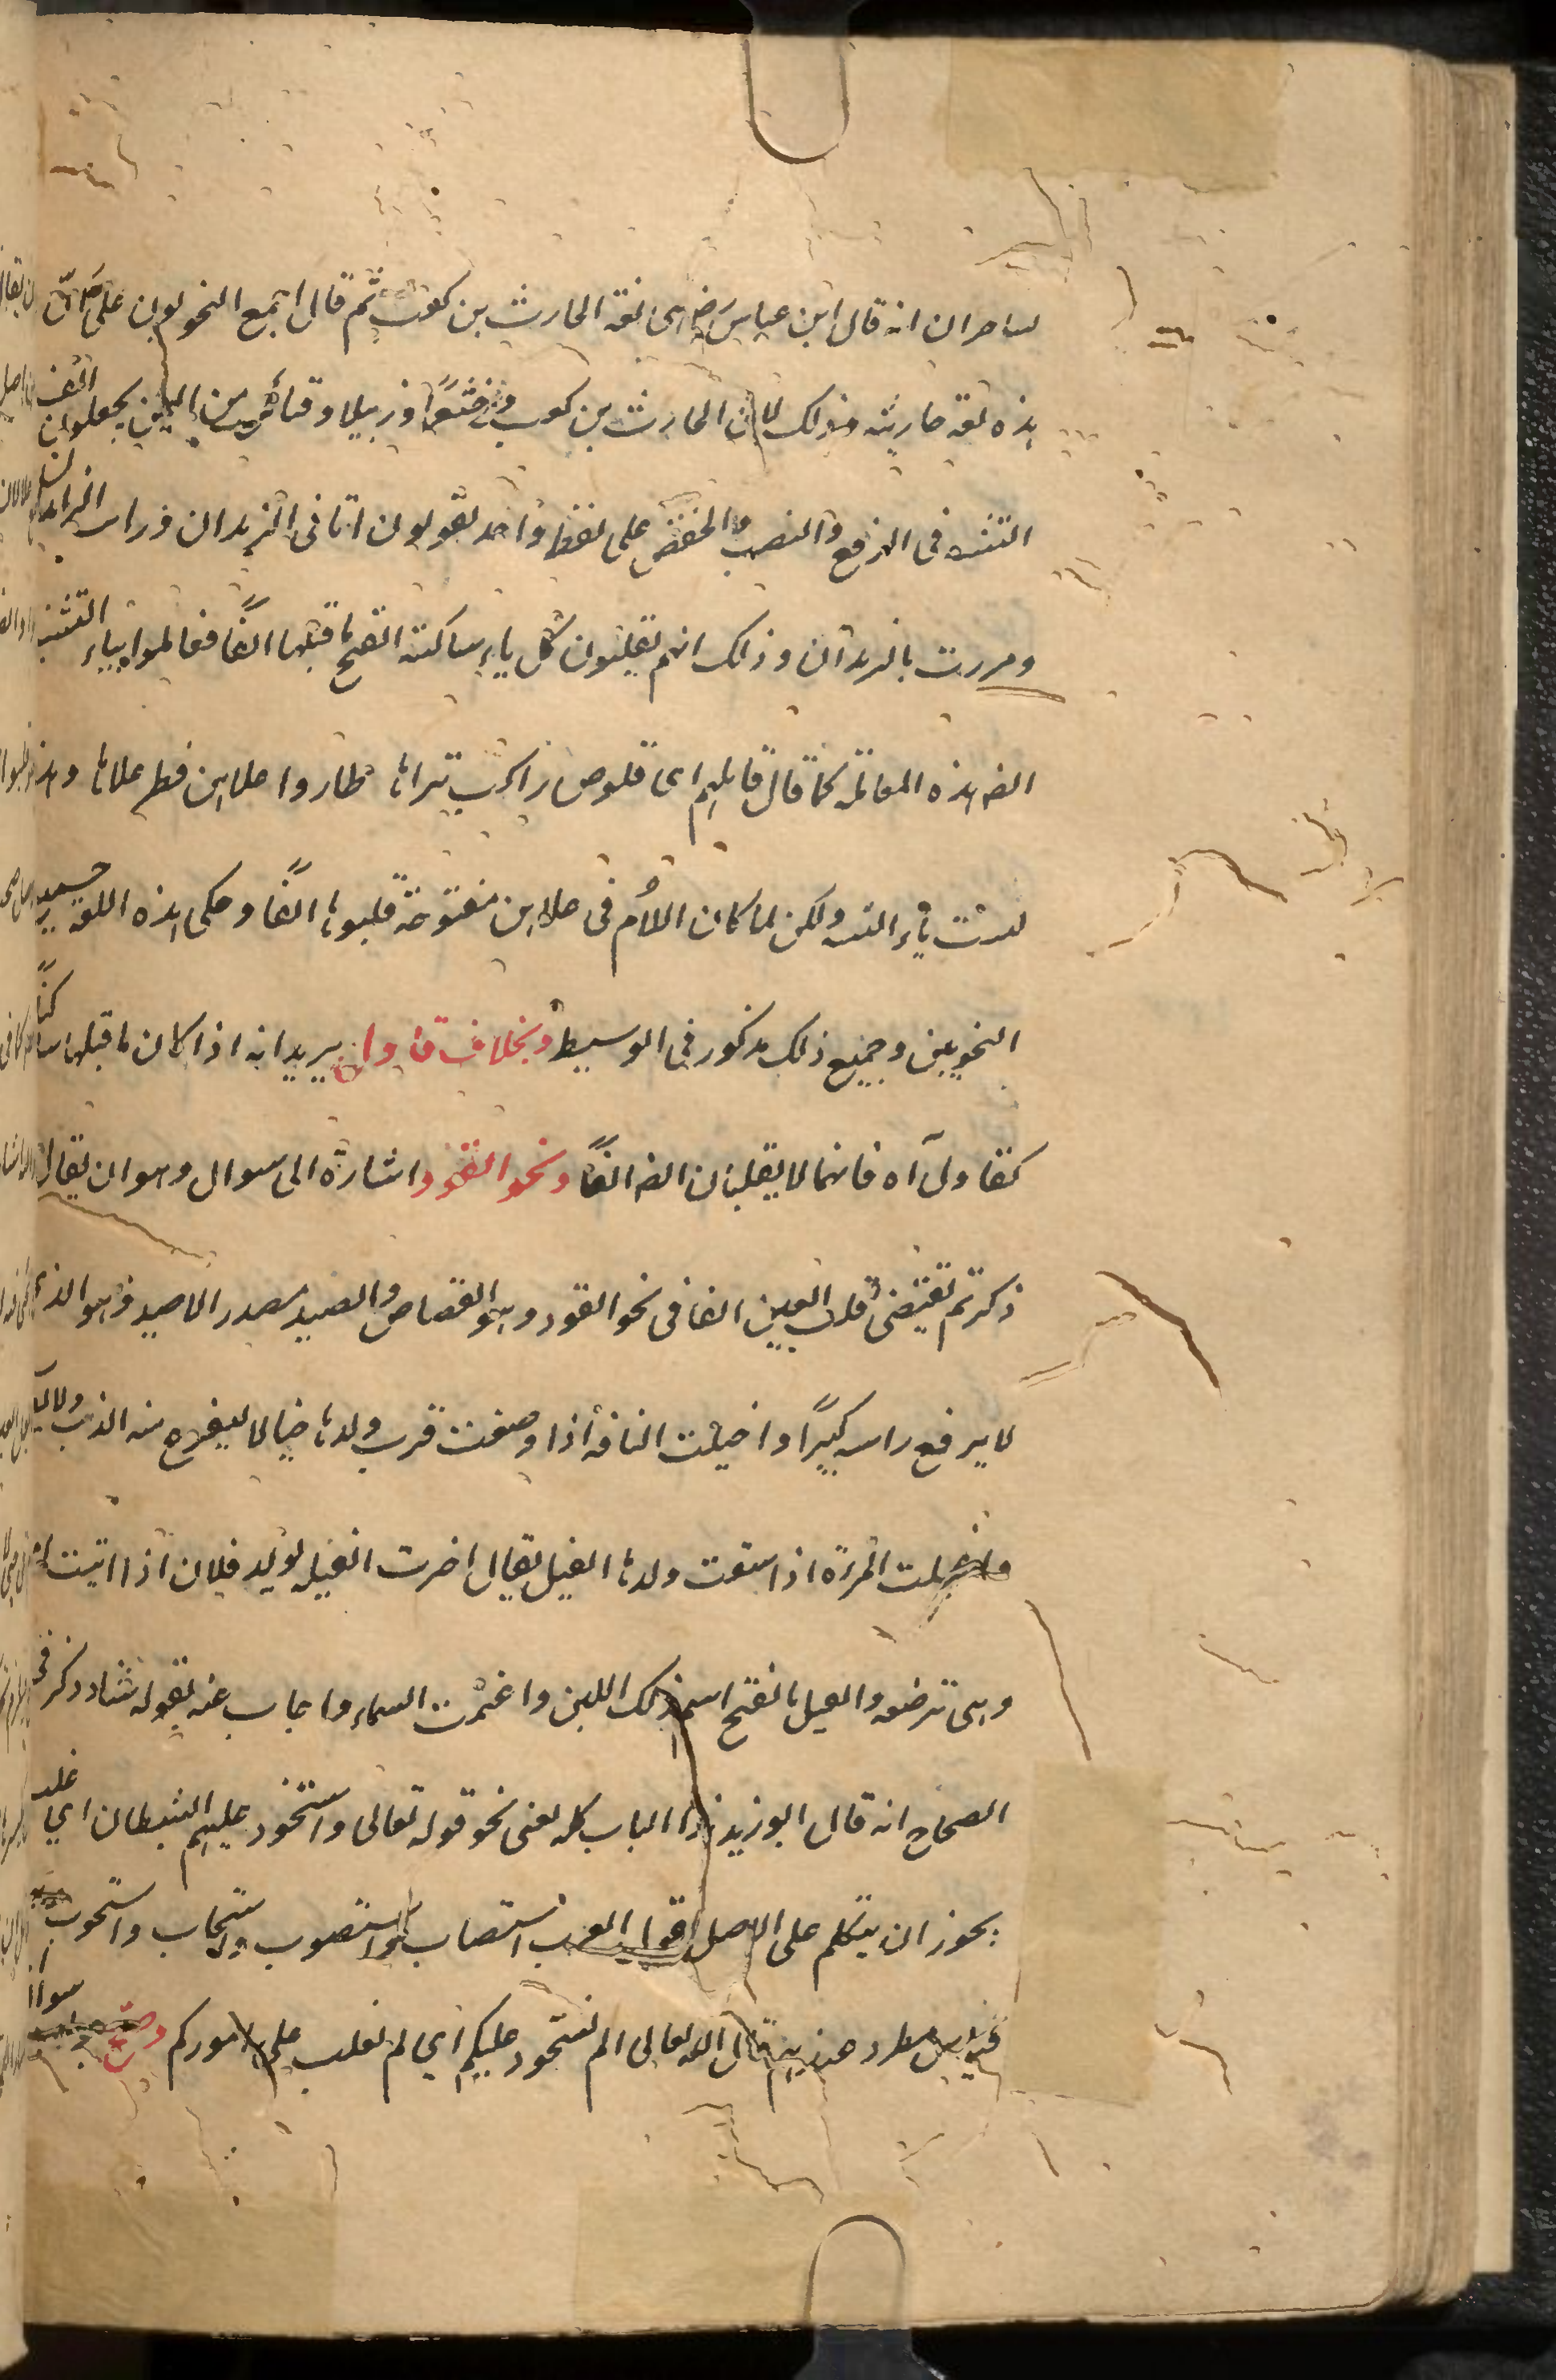 لساحران انه قال ابن عباس رضى هى لغة الحارث بن كعب ثم قال اجمع النحويون على ان
هذه لغة حارثية وذلك لان الحارث بن كعب وخثعما وزبيدا وقبائل من اليمن يجعلون الف
التثنية فى الرفع والنصب والخفض على لفظ واحد يقولون اتانى الزيدان ورايت الزيدان
ومررت بالزيدان وذلك انهم يقلبون كل ياء ساكنة انفتح ما قبلها الفًا فعاملوا بياء التثنية
ايضا هذه المعاملة كما قال قايلهم اى قلوص راكب تراها طاروا علاهن فطر علاها وهذه
ليست ياء التثنية ولكن لما كان اللام فى علاهن مفتوحة قلبوها الفًا وحكى هذه اللغة جميع
النحويين وجميع ذلك مذكور فى الوسيط وبخلاف قاول يريد انه اذا كان ما قبلها ساكنًا
كقاول آه فانهما لا يقلبان ايضا الفًا ونحو القود اشارة الى سوال وهو ان يقال
ذكرتم تقتضى قلب العين الفا فى نحو القود وهو القصاص والصيد مصدر الاصيد وهو الذى
لا يرفع راسه كبرًا واخيلت الناقة اذا وضعت قرب ولدها خيالا ليفزع منه الذئب
واغيلت المرءة اذا سقت ولدها الغيل يقال اضرت الغيلة بولد فلان اذا اتيت امه
وهى ترضعه والغيل بالفتح اسم ذلك اللبن واغيمت السماء واجاب عنه بقوله شاذ ذكر فى
الصحاح انه قال ابو زيد هذا الباب كله يعنى نحو قوله تعالى واستحوذ عليهم الشيطان اي غلب
يجوز ان يتكلم على الاصل تقول العرب استصاب واستصوب واستجاب واستجوب
قياس مطرد عندهم قال الله تعالى الم نستحوذ عليكم اي لم نغلب على اموركم وصح